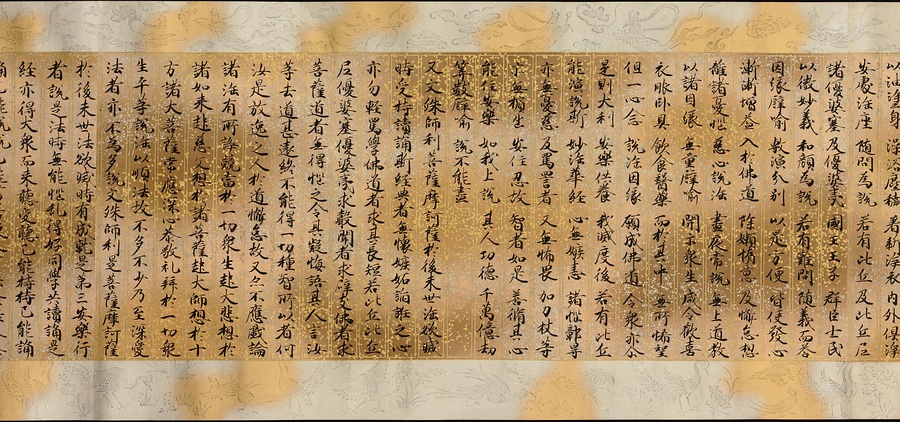 以油塗身 澡浴塵穢 著新淨衣 內外俱淨
安處法座 隨問為說 若有比丘 及比丘尼
諸優婆塞 及優婆夷 國王王子 群臣士民
以微妙義 和顏為說 若有難問 隨義而答
因緣譬喻 敷演分別 以是方便 皆使發心
漸漸增益 入於佛道 除嬾惰意 及懈怠想
離諸憂惱 慈心說法 晝夜常說 無上道教
以諸因緣 無量譬喻 開示眾生 咸令歡喜
衣服臥具 飲食醫藥 而於其中 無所悕望
但一心念 說法因緣 願成佛道 令眾亦尒
是則大利 安樂供養 我滅度後 若有比丘
能演說斯 妙法華經 心無嫉恚 諸惱障㝵
亦無憂愁 及罵詈者 又無怖畏 加刀杖等
亦無擯出 安住忍故 智者如是 善修其心
能住安樂 如我上說 其人功德 千萬億劫
筭數譬喻 說不能盡
又文殊師利菩薩摩訶薩於後末世法欲滅
時受持讀誦斯經典者無懷嫉妬諂誑之心
亦勿輕罵學佛道者求其長短若比丘比丘
尼優婆塞優婆夷求聲聞者求辟支佛者求
菩薩道者無得惱之令其疑悔語其人言汝
等去道甚遠終不能得一切種智所以者何
汝是放逸之人於道懈怠故又亦不應戲論
諸法有所諍競當於一切眾生起大悲想於
諸如來起慈父想於諸菩薩起大師想於十
方諸大菩薩常應深心恭敬礼拜於一切眾
生平等說法以順法故不多不少乃至深愛
法者亦不為多說文殊師利是菩薩摩訶薩
於後末世法欲滅時有成就是第三安樂行
者說是法時無能惱亂得好同學共讀誦是
經亦得大眾而來聽受聽已能持持已能誦